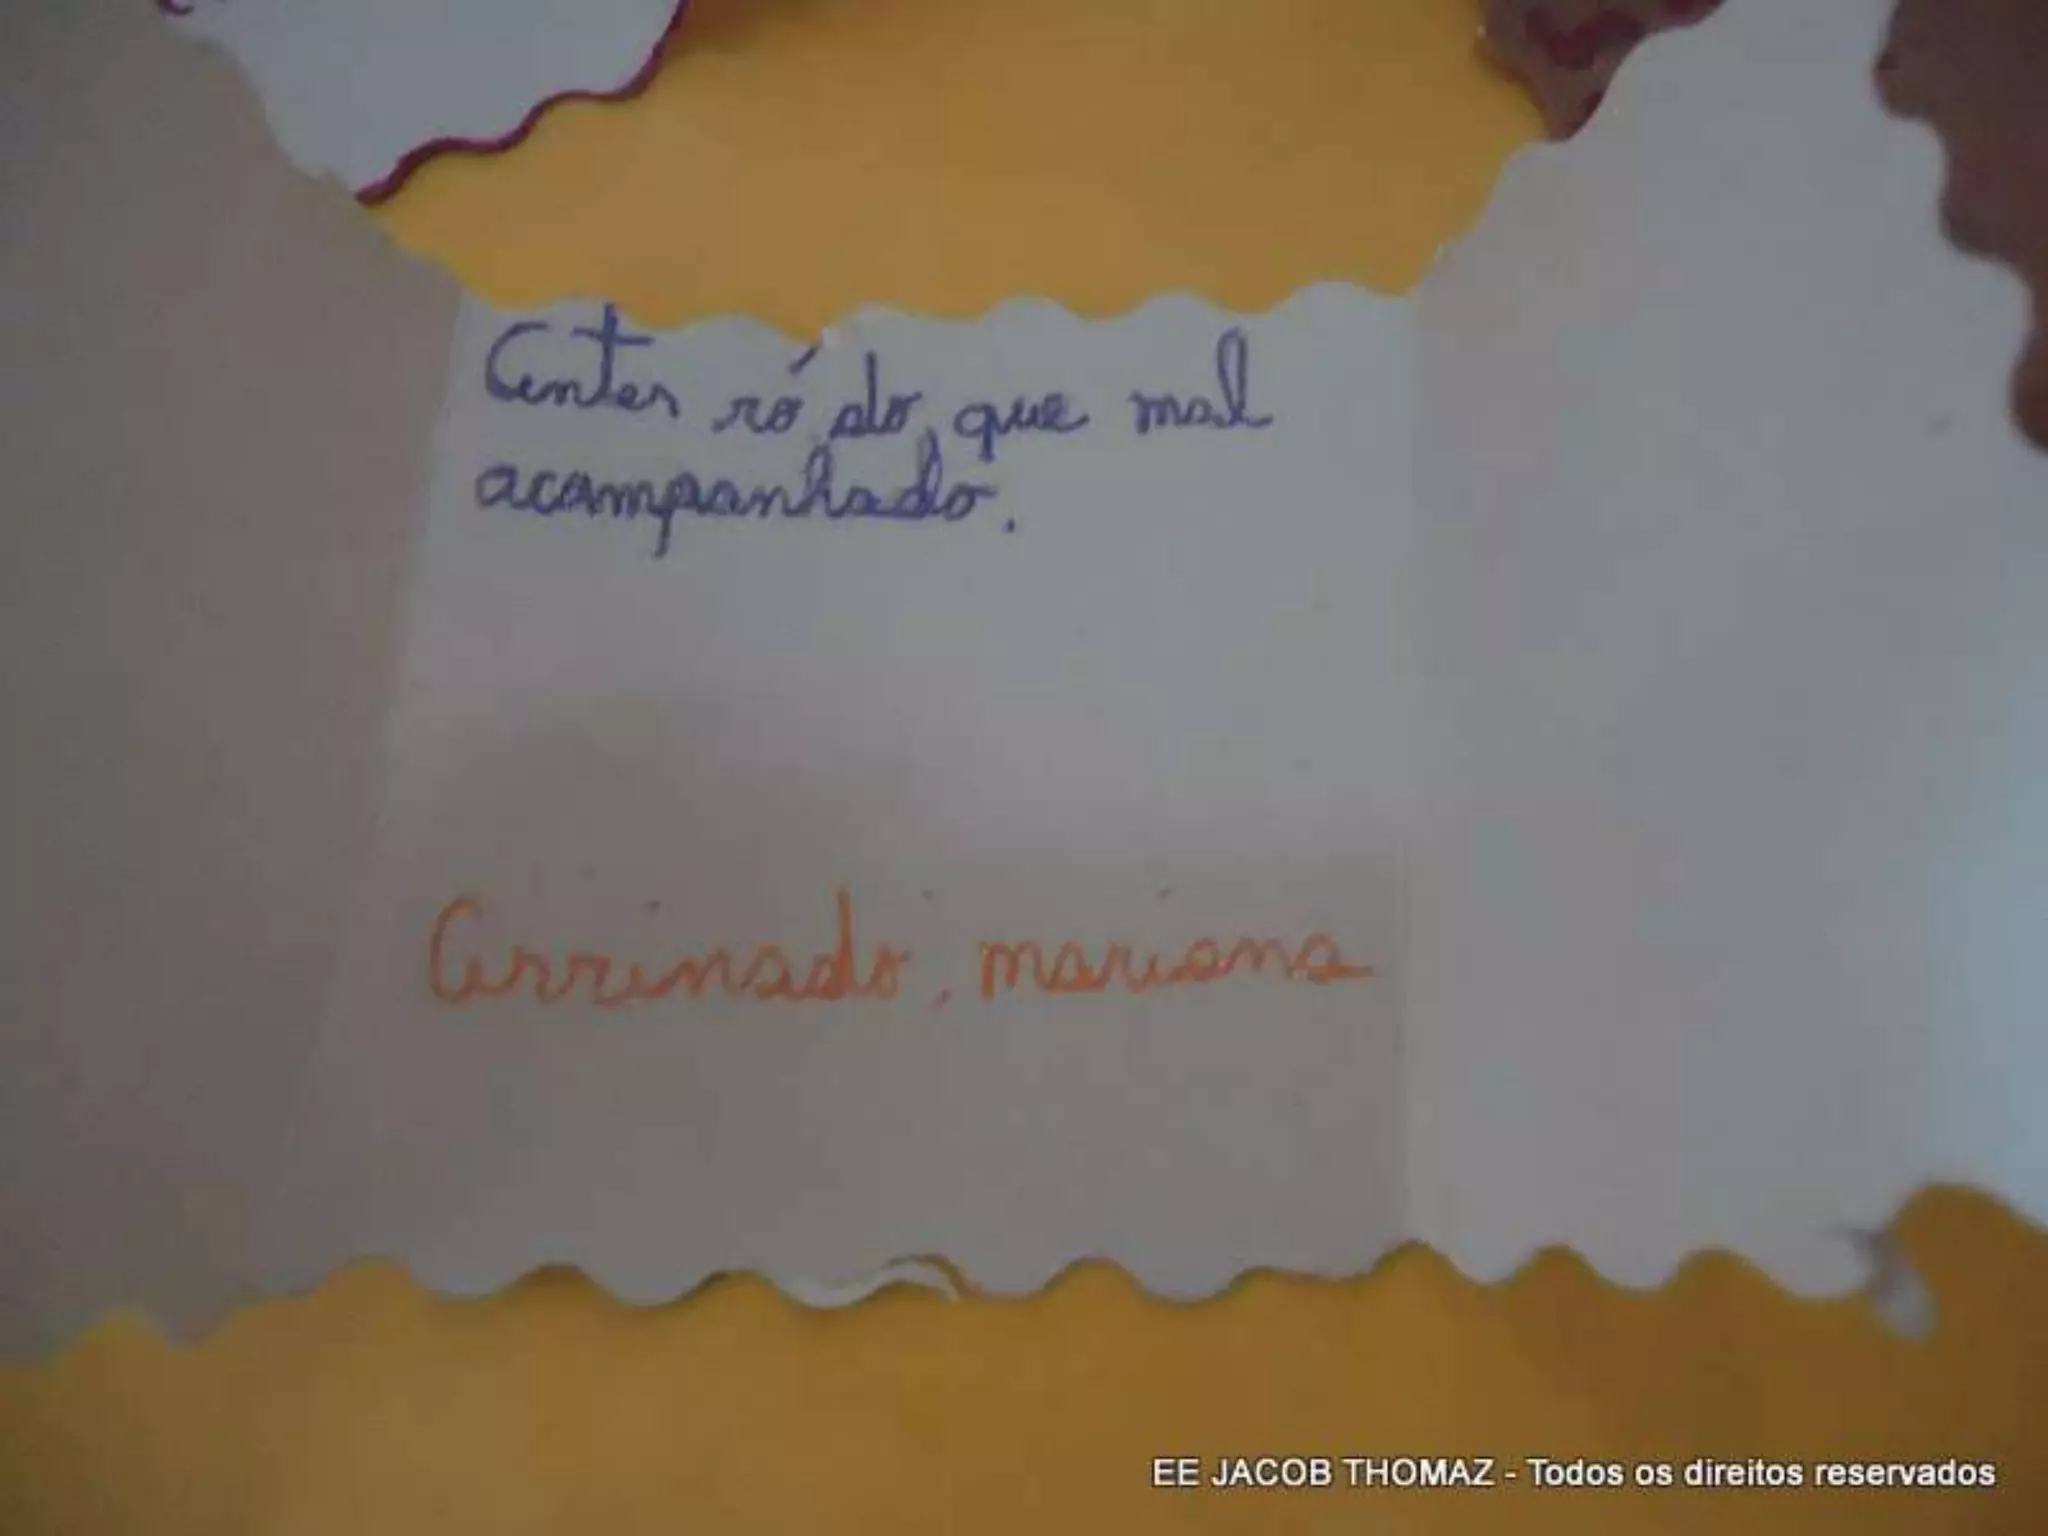 Antes só do que mal
acompanhado.
Assinado, mariana
EE JACOB THOMAZ - Todos os direitos reservados